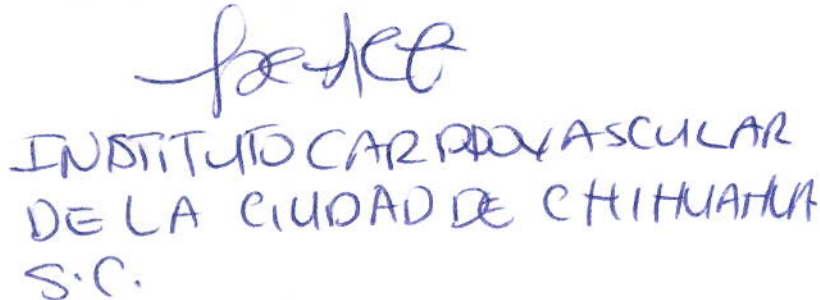 INSTITUTO CARDIOVASCULAR
DE LA CIUDAD DE CHIHUAHUA
S.C.